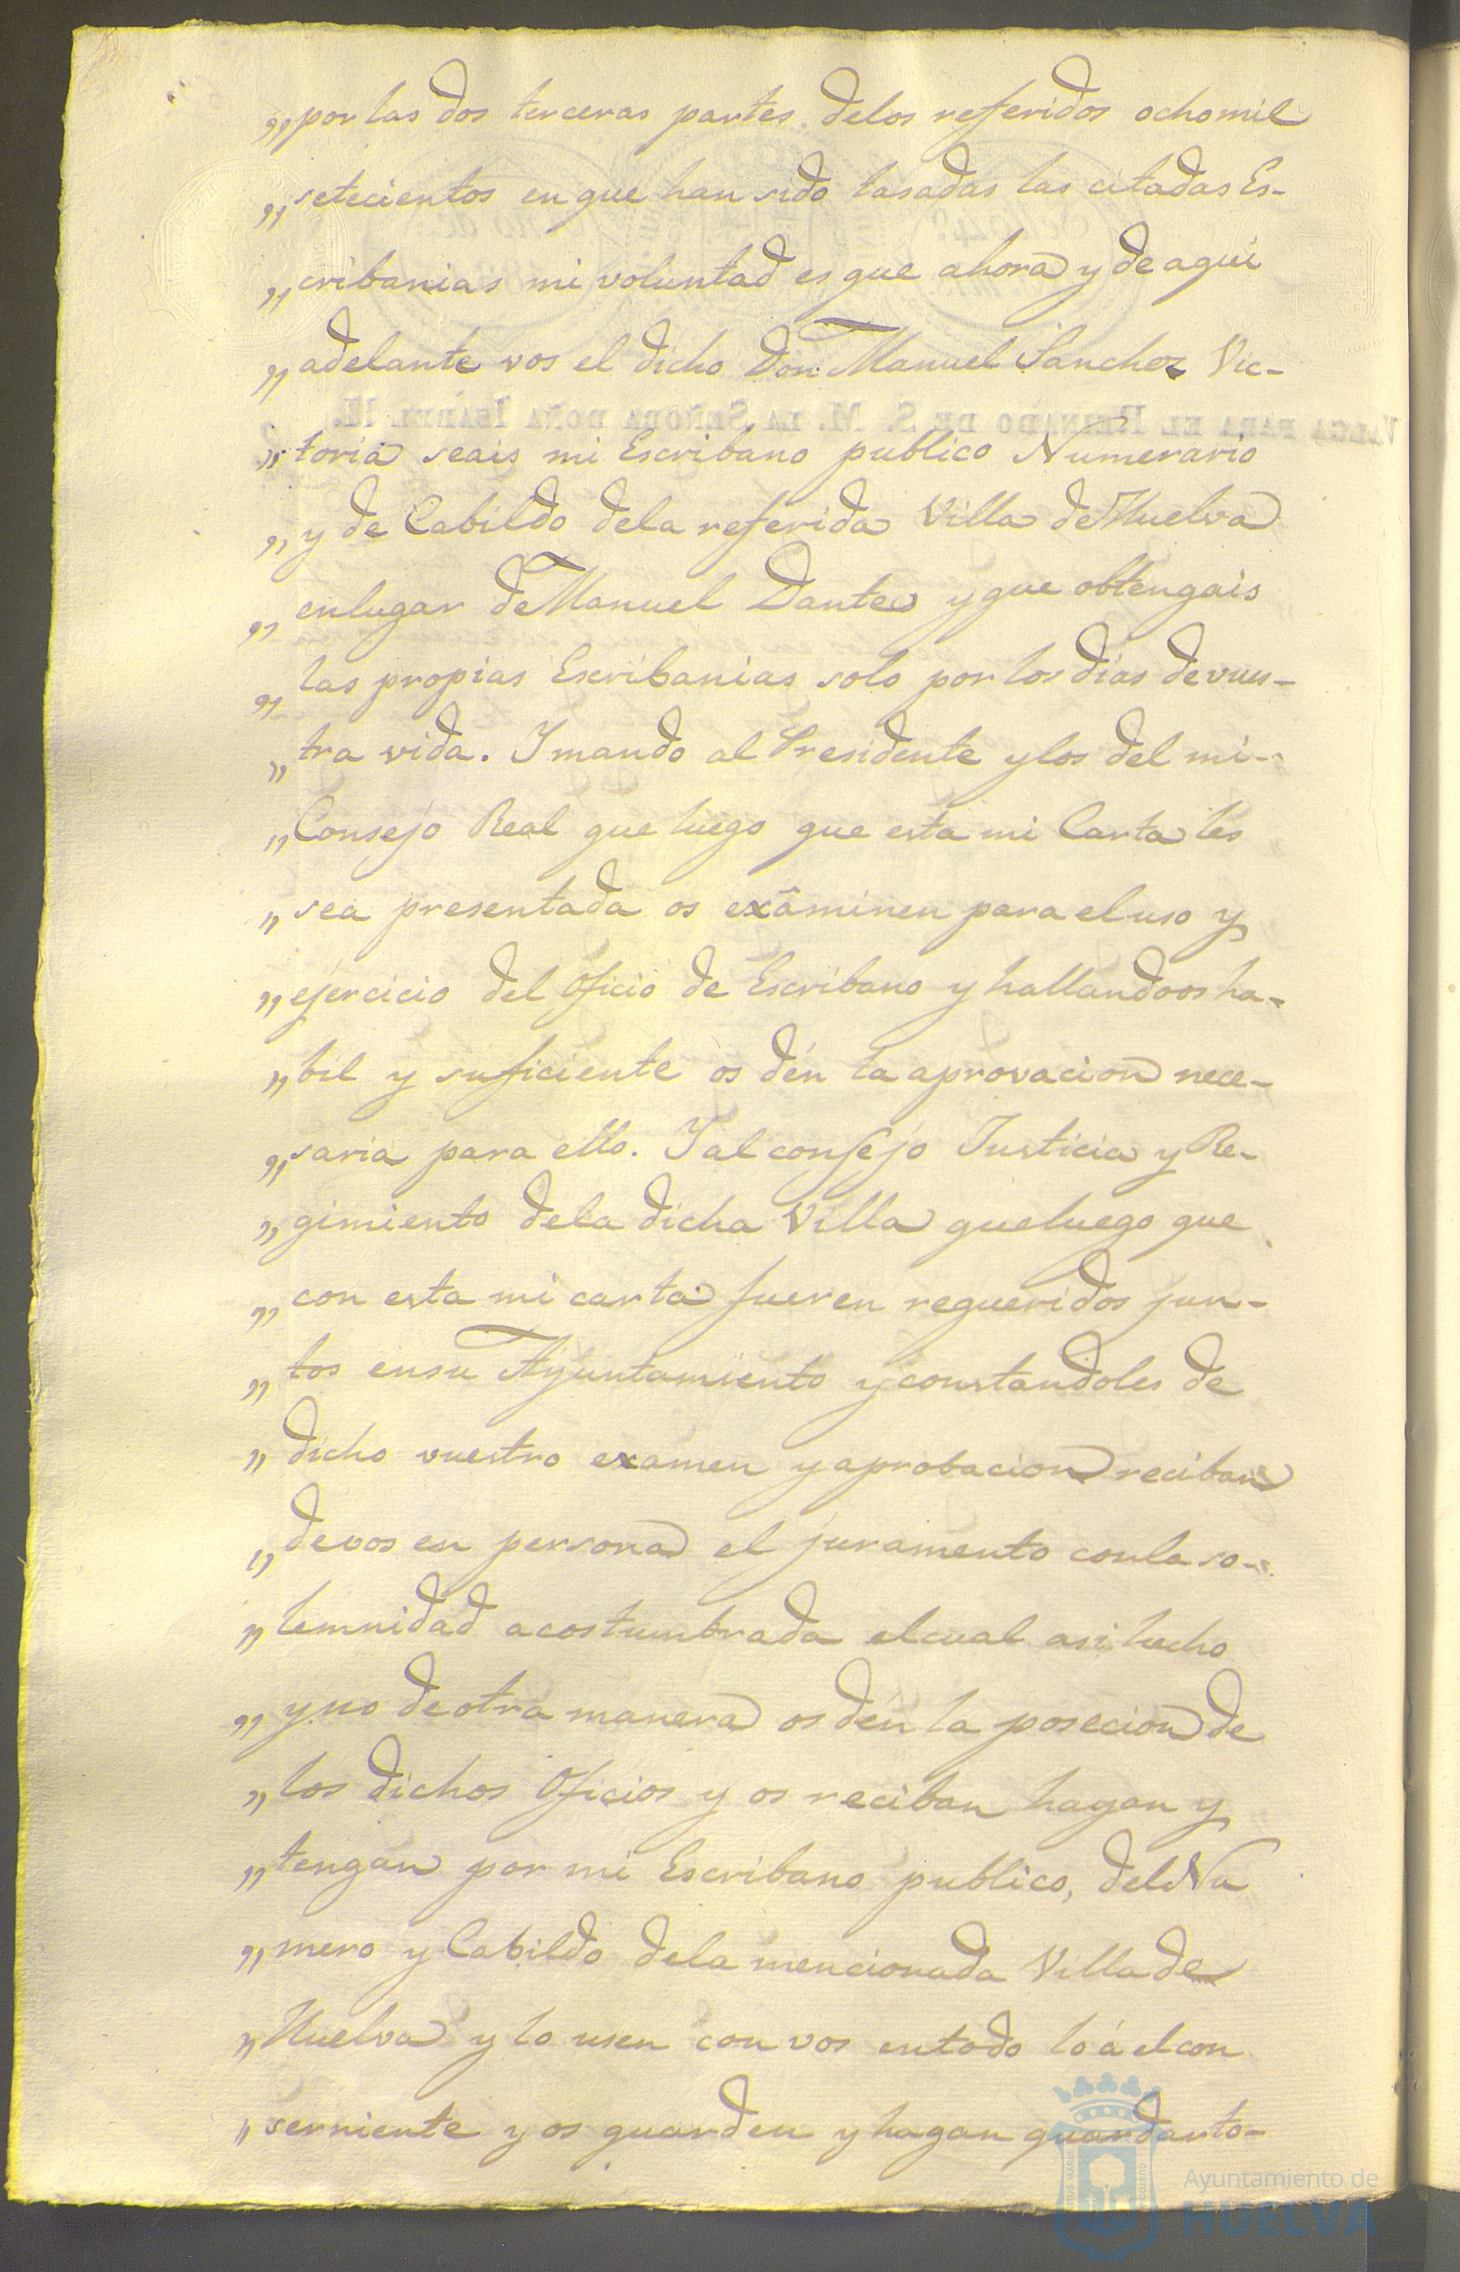 „por las dos terceras partes delos referidos ochomil
„setecientos en que han sido tasadas las citadas Es-
„cribanias mi voluntad es que ahora y de aqui
„adelante vos el dicho Don Manuel Sanchez Vic-
„toria seais mi Escribano publico Numerario
„y de Cabildo dela referida Villa de Huelva
„enlugar de Manuel Dantes y que obtengais
„las propias Escribanias solo por los dias de vues-
„tra vida. Y mando al Presidente y los del mi-
„Consejo Real que luego que esta mi Carta les
„sea presentada os exâminen para el uso y
„ejercicio del Oficio de Escribano y hallandoos ha-
„bil y suficiente os dén la aprovacion nece-
„saria para ello. Y al consejo Justicia y Re-
„gimiento dela dicha Villa que luego que
„con esta mi carta fueren requeridos jun-
„tos en su Ayuntamiento y constandoles de
„dicho vuestro examen y aprobacion reciban
„de vos en persona el juramento con la so-
„lemnidad acostumbrada el cual asi hecho
„y no de otra manera os dén la posecion de
„los dichos Oficios y os reciban hayan y
„tengan por mi Escribano publico, del Nu
„mero y Cabildo dela mencionada Villa de
„Huelva y lo usen con vos en todo lo á el con
„serniente y os guarden y hagan guardar to-
VALGA PARA EL REINADO DE S. M. LA SEÑORA DOÑA ISABEL II.
Ayuntamiento de
HUELVA